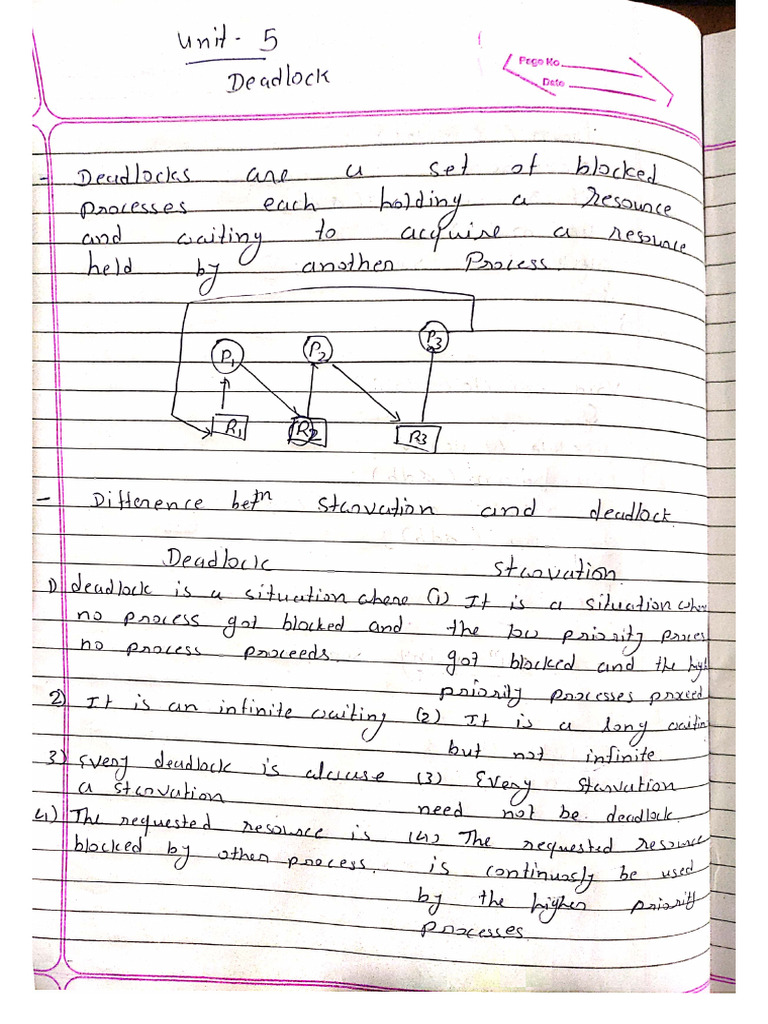 Unit - 5
Deadlock
Page No
Date
- Deadlocks are a set of blocked
processes each holding a resource
and waiting to acquire a resource
held by another Process.
P1 P2 P3
R1 R2 R3
- Difference betn starvation and deadlock.
Deadlock Starvation
1) deadlock is a situation where (1) It is a situation wher
no process got blocked and the low priority proces
no process proceeds. got blocked and the high
priority processes proceed
2) It is an infinite waiting (2) It is a long waitin
but not infinite.
3) Every deadlock is alause (3) Every starvation
a starvation need not be deadlock.
4) The requested resource is (4) The requested resource
blocked by other process. is continuosly be used
by the higher priorit
processes